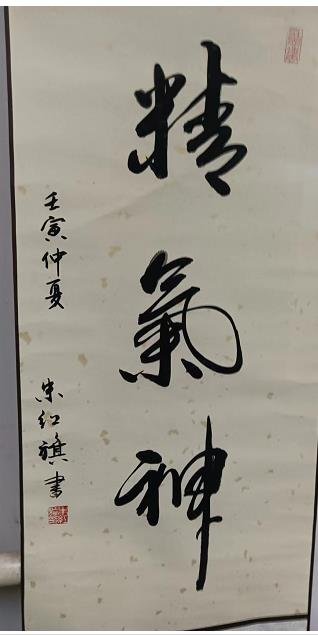 精氣神
壬寅仲夏
朱红旗書